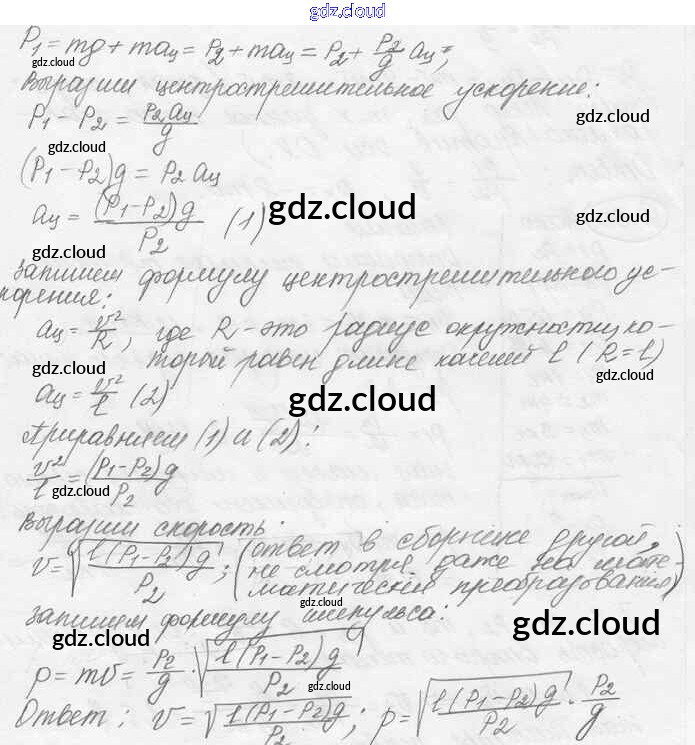 gdz.cloud
P₁ = mg + maц = P₂ + maц = P₂ + P₂/g aц;
gdz.cloud gdz.cloud
Выразим центростремительное ускорение:
P₁ - P₂ = P₂aц/g
gdz.cloud
gdz.cloud
(P₁ - P₂)g = P₂aц
aц = (P₁ - P₂)g/P₂ (1)
gdz.cloud gdz.cloud
gdz.cloud
Запишем формулу центростремительного ус-
корения:
aц = v²/R, где R - это радиус окружности, ко-
торый равен длине качелей l (R = l)
gdz.cloud gdz.cloud
aц = v²/l (2)
gdz.cloud
Приравняем (1) и (2):
v²/l = (P₁ - P₂)g/P₂
gdz.cloud
Выразим скорость:
v = √(l(P₁ - P₂)g/P₂); (ответ в сборнике другой,
не смотря даже на мате-
матические преобразования)
gdz.cloud
Запишем формулу импульса:
gdz.cloud gdz.cloud
p = mv = P₂/g · √(l(P₁ - P₂)g/P₂)
gdz.cloud
Ответ: v = √(l(P₁ - P₂)g/P₂); p = √(l(P₁ - P₂)g/P₂) · P₂/g
gdz.cloud